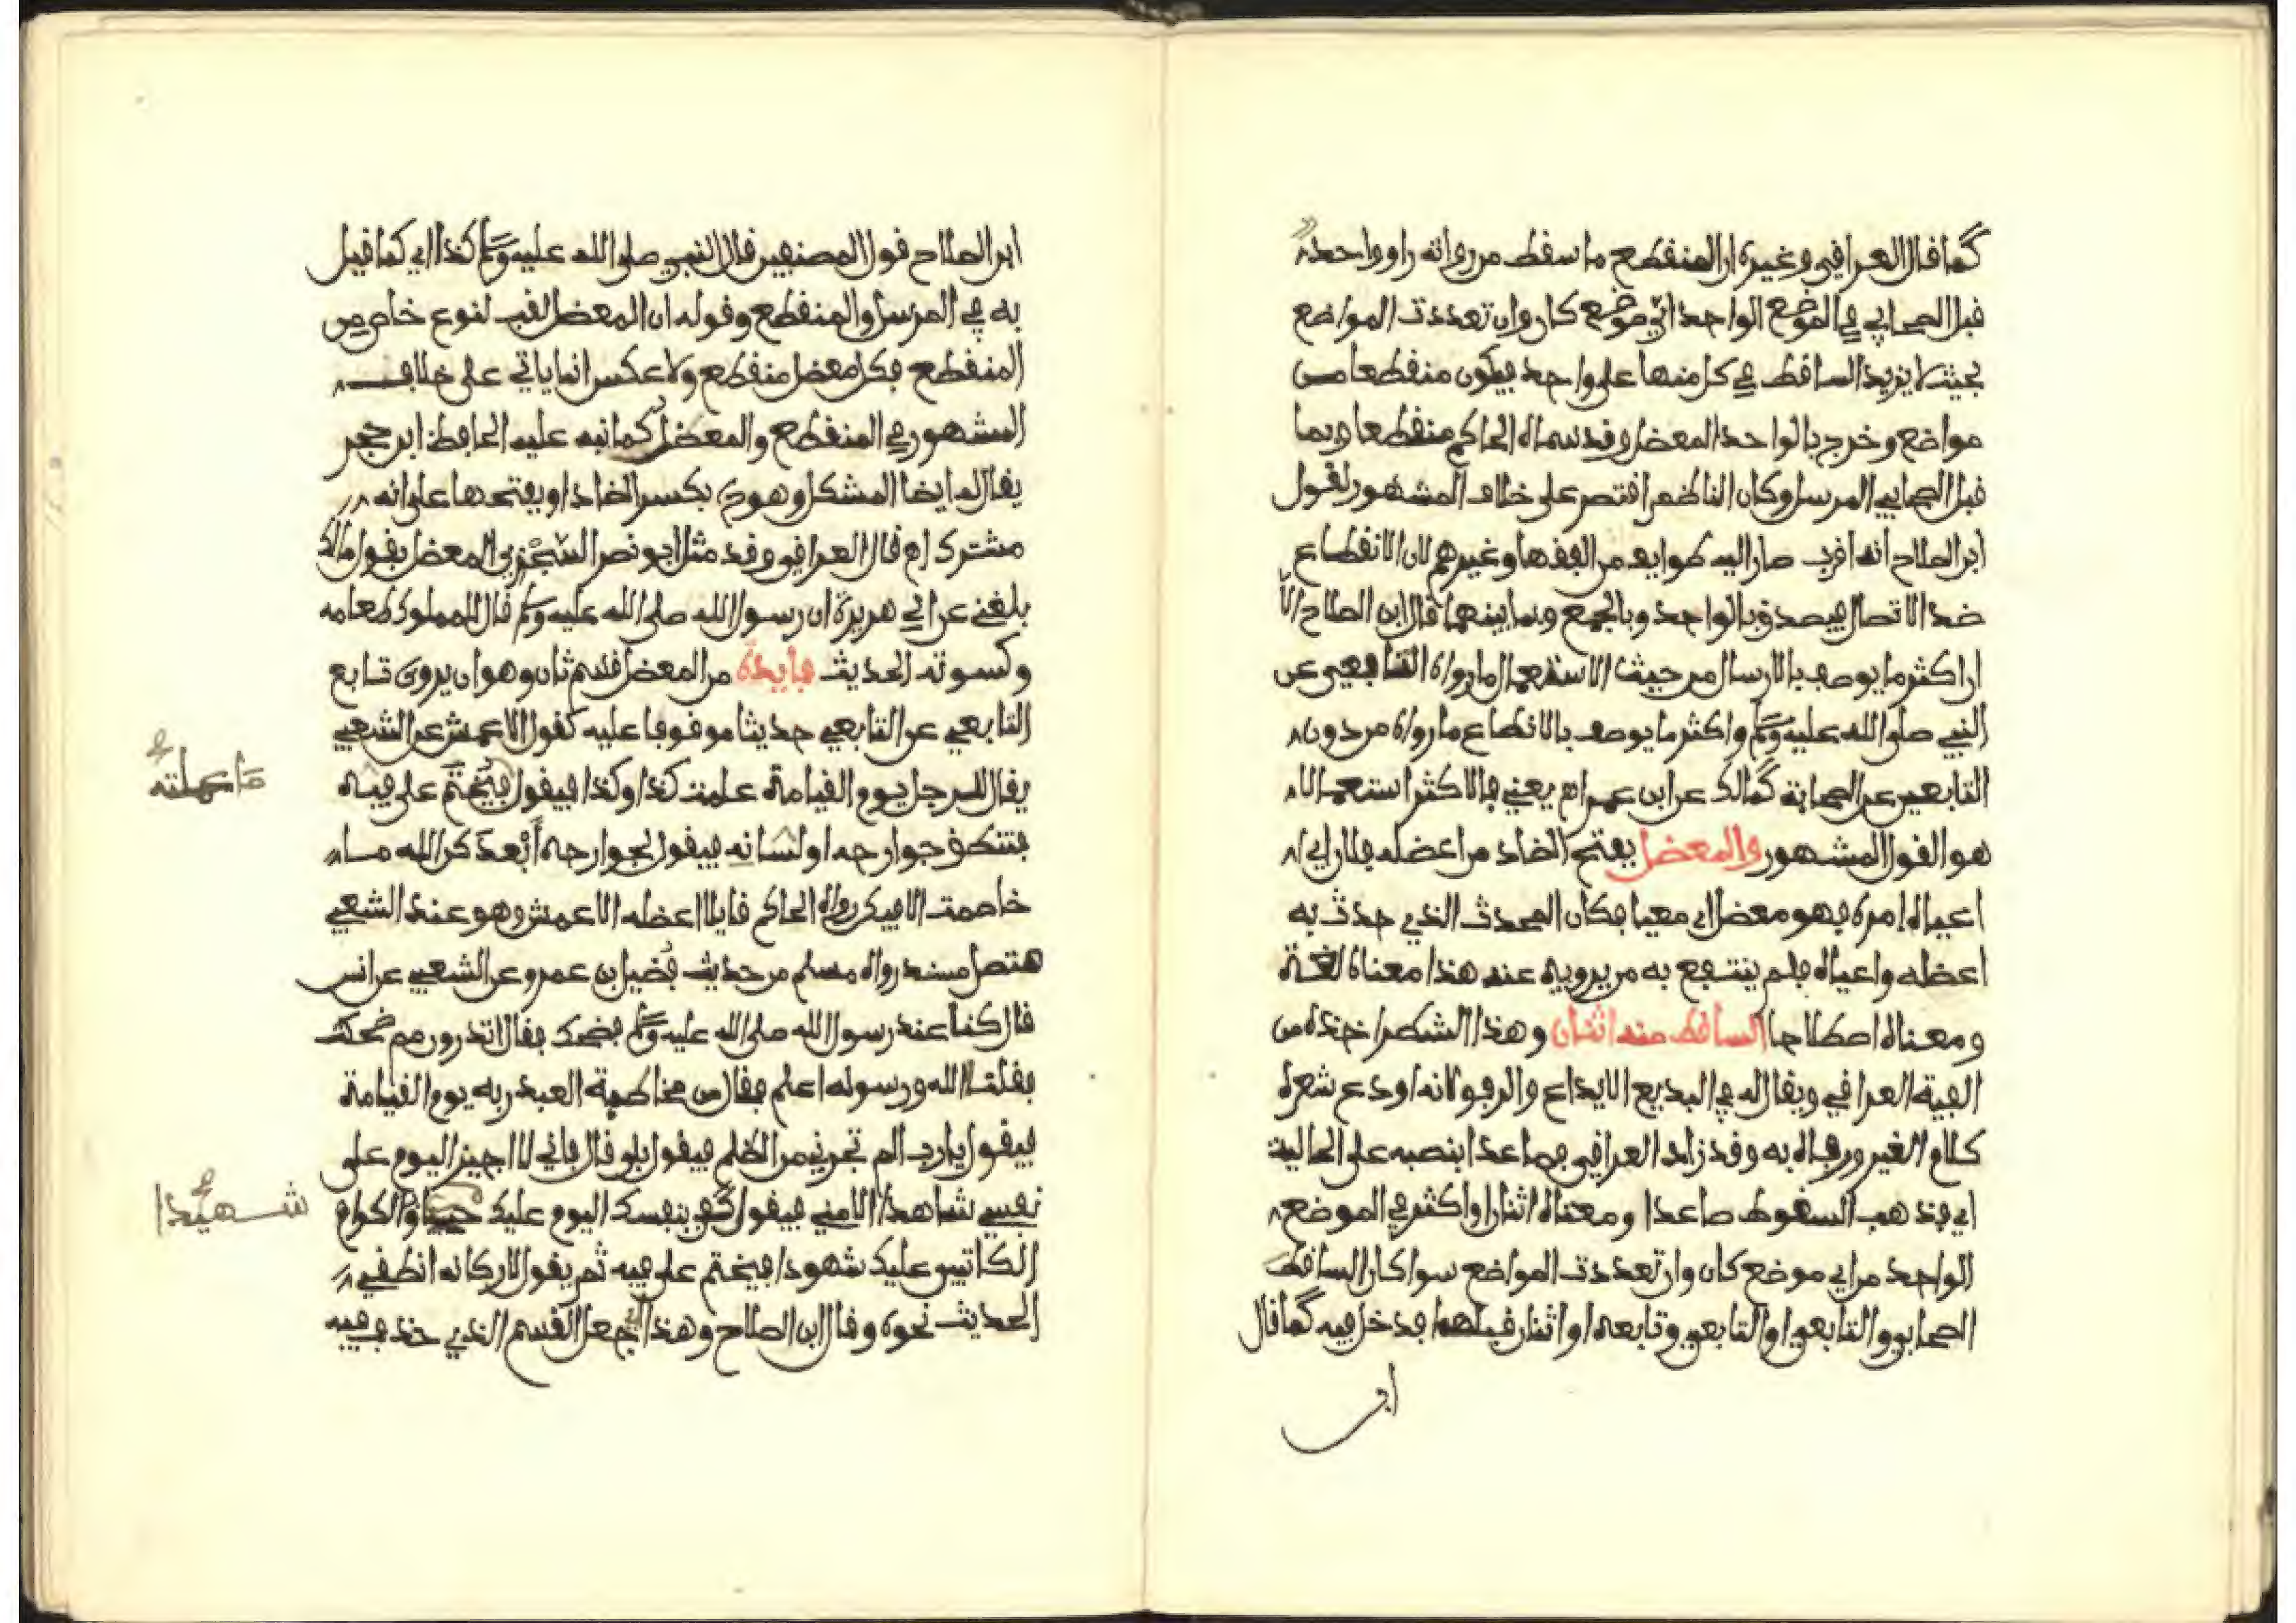 كما قال العراقي وغيره ان المنقطع ما سقط من رواته راو واحد
قبل الصحابي في الموضع الواحد اي موضع كان وان تعددت المواضع
بحيث لا يزيد الساقط في كل منها على واحد فيكون منقطعا من
مواضع وخرج بالواحد المعضل وقد سماه الحاكم منقطعا وبما
قبل الصحابي المرسل وكان الناظم اقتصر على خلاف المشهور لقول
ابن الصلاح انه اقرب صار اليه طوايف من الفقها وغيرهم لان الانقطاع
ضد الاتصال فيصدق بالواحد وبالجمع وبما بينهما قال ابن الصلاح الا
ان اكثر ما يوصف بالارسال من حيث الاستعمال ما رواه التابعي عن
النبي صلى الله عليه وسلم واكثر ما يوصف بالانطاع ما رواه من دون
التابعين عن الصحابة كمالك عن ابن عمر اه يعني فالاكثر استعمالا
هو القول المشهور والمعضل بفتح الضاد من اعضله فلان اي
اعياه امره فهو معضل اي معيا فكان المحدث الذي حدث به
اعضله واعياه فلم ينتفع به من يرويه عنه هذا معناه لغة
ومعناه اصطلاحا الساقط منه اثنان وهذا الشطر اخذه من
الفية العراقي ويقال له في البديع الايداع والرفو لانه اودع شعره
كلام الغير ورفاه به وقد زاد العراقي فصاعدا بنصبه على الحالية
اي فذهب السقوط صاعدا ومعناه اثنان او اكثر في الموضع
الواحد من اي موضع كان وان تعددت المواضع سوا كان الساقط
الصحابي والتابعي او التابعي وتابعه او اثنان قبلهما فدخل فيه كما قال
ابن
ابن الصلاح قول المصنفين قال النبي صلى الله عليه وسلم كذا اي كما قيل
به في المرسل والمنقطع وقوله ان المعضل لقب لنوع خاص من
المنقطع فكل معضل منقطع ولا عكس انما ياتي على خلاف
المشهور في المنقطع والمعضل كما نبه عليه الحافظ ابن حجر
يقال له ايضا المشكل وهو بكسر الضاد او بفتحها على انه
مشترك اه قال العراقي وقد مثل ابو نصر السجزي المعضل بقول مالك
بلغني عن ابي هريرة ان رسول الله صلى الله عليه وسلم قال للمملوك طعامه
وكسوته الحديث فايدة من المعضل قسم ثان وهو ان يروى تابع
التابعي عن التابعي حديثا موقوفا عليه كقول الاعمش عن الشعبي
يقال للرجل يوم القيامة علمت كذا وكذا فيقول فيختم على فيه
ما عملته
فتنطق جوارحه او لسانه فيقول لجوارحه ابعدكن الله ما
خاصمت الا فيكن رواه الحاكم قايلا اعضله الاعمش وهو عند الشعبي
متصل مسند رواه مسلم من حديث فضيل بن عمرو عن الشعبي عن انس
قال كنا عند رسول الله صلى الله عليه وسلم فضحك فقال اتدرون مم ضحكت
فقلنا الله ورسوله اعلم فقال من مخاطبة العبد ربه يوم القيامة
فيقول يارب الم تجرني من الظلم فيقول بلى قال فاني لا اجيز اليوم على
نفسي شاهدا الا مني فيقول كفى بنفسك اليوم عليك حسيبا والكرام
شهيدا
الكاتبين عليك شهودا فيختم على فيه ثم يقول لاركانه انطقي
الحديث نحوه وقال ابن الصلاح وهذا اي جعل القسم الذي حذف فيه